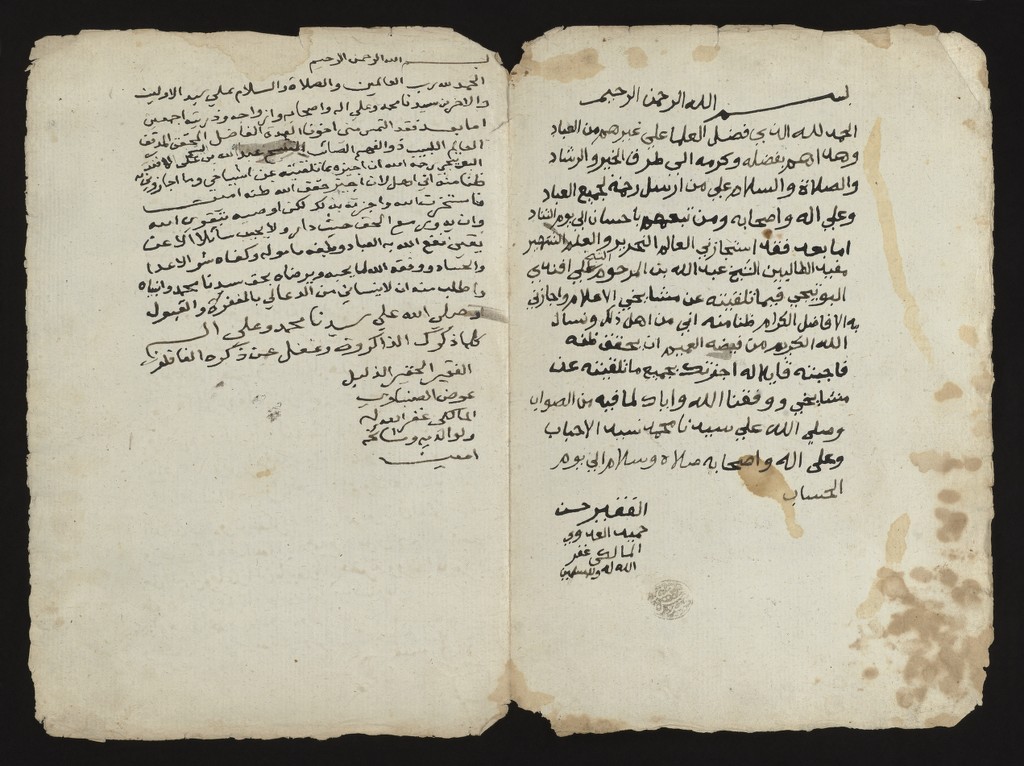 بسم الله الرحمن الرحيم
الحمد لله الذي فضل العلما علي غيرهم من العباد
وهداهم بفضله وكرمه الي طرق الخير والرشاد
والصلاة والسلام علي من ارسل رحمة لجميع العباد
وعلي اله واصحابه ومن تبعهم باحسان الي يوم التناد
اما بعد فقد استجازني العالم النحرير والعلم الشهير
مفيد الطالبين الشيخ عبد الله بن المرحوم الشيخ علي افندي
البوتيجي فيما تلقيته عن مشايخي الاعلام واجازني
به الافاضل الكرام ظنا منه اني من اهل ذلك ونسال
الله الكريم من فيضه العميم ان يحقق ظنه
فاجبته قايلا له اجزتك بجميع ما تلقيته عن
مشايخي ووفقنا الله واياك لما فيه من الصواب
وصلي الله علي سيدنا محمد سيد الاحباب
وعلي اله واصحابه صلاة وسلام الي يوم
الحساب
الفقير حسن
العدوي
المالكي غفر
الله له وللمسلمين
بسم الله الرحمن الرحيم
الحمد لله رب العالمين والصلاة والسلام علي سيد الاولين
والاخرين سيدنا محمد وعلي اله واصحابه وازواجه وذريته اجمعين
اما بعد فقد التمس مني اخونا العمدة الفاضل المحقق المدقق
اللبيب ذو الفهم الصائب الشيخ عبد الله بن علي
رحمه الله ان اجيزه بما تلقيته عن اشياخي وما اجازوني به
ظنا منه اني اهل لان اجيز حقق الله ظنه امين
فاستخرت الله واجزته بذلك لكن اوصيه بتقوي الله
وان يدور مع الحق حيث دار ولا يجيب سائلا الا عن
يقين نفع الله به العباد وكفاه شر الاعدا
والحساد ووفقه الله لما يحبه ويرضاه بحق سيدنا محمد وانبياه
واطلب منه ان لا ينساني من الدعا لي بالمغفرة والقبول
وصلي الله علي سيدنا محمد وعلي اله
كلما ذكرك الذاكرون وغفل عن ذكره الغافلون
الفقير الحقير الذليل
عوض
المالكي غفر الله له
ولوالديه ومشايخه
امين